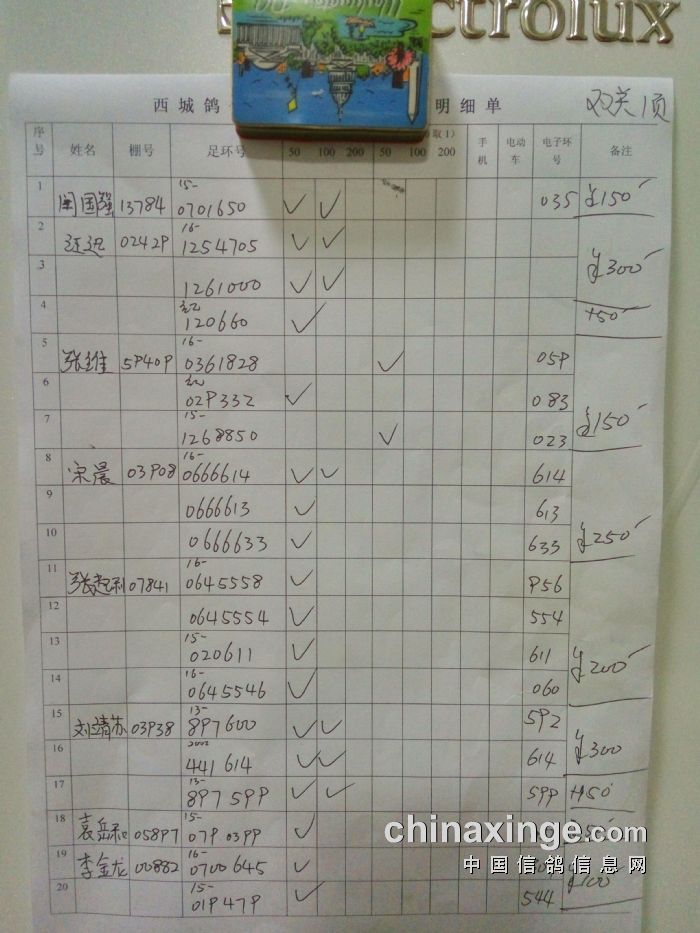 西城鸽 明细单 双关1页
序号 姓名 棚号 足环号 50 100 200 50 100 200 手机 电动车 电子环号 备注
取1)
1 闫国强 13784 15- 0701650 ✓ ✓ 035 ¥150
2 迋迅 0242P 16- 1254705 ✓ ✓
3 1261000 ✓ ✓ ¥300
4 红 120660 ✓ +50
5 张维 5P40P 16- 0361828 ✓ 05P
6 红 02P332 ✓ 083
7 15- 1268850 ✓ 023 ¥150
8 宋晨 03P08 16- 0666614 ✓ ✓ 614
9 0666613 ✓ 613
10 0666633 ✓ 633 ¥250
11 张起利 07841 16- 0645558 ✓ P56
12 0645554 ✓ 554
13 15- 020611 ✓ 611
14 16- 0645546 ✓ 060 ¥200
15 刘靖苏 03P38 13- 8P7600 ✓ ✓ 5P2
16 2002 441614 ✓ ✓ 614 ¥300
17 13- 8P75PP ✓ ✓ 5PP +150
18 袁岳和 058P7 15- 07P03PP ✓
19 李金龙 00882 16- 0700645 ✓ ¥100
20 15- 01P47P ✓ 544
chinaxinge.com
中国信鸽信息网